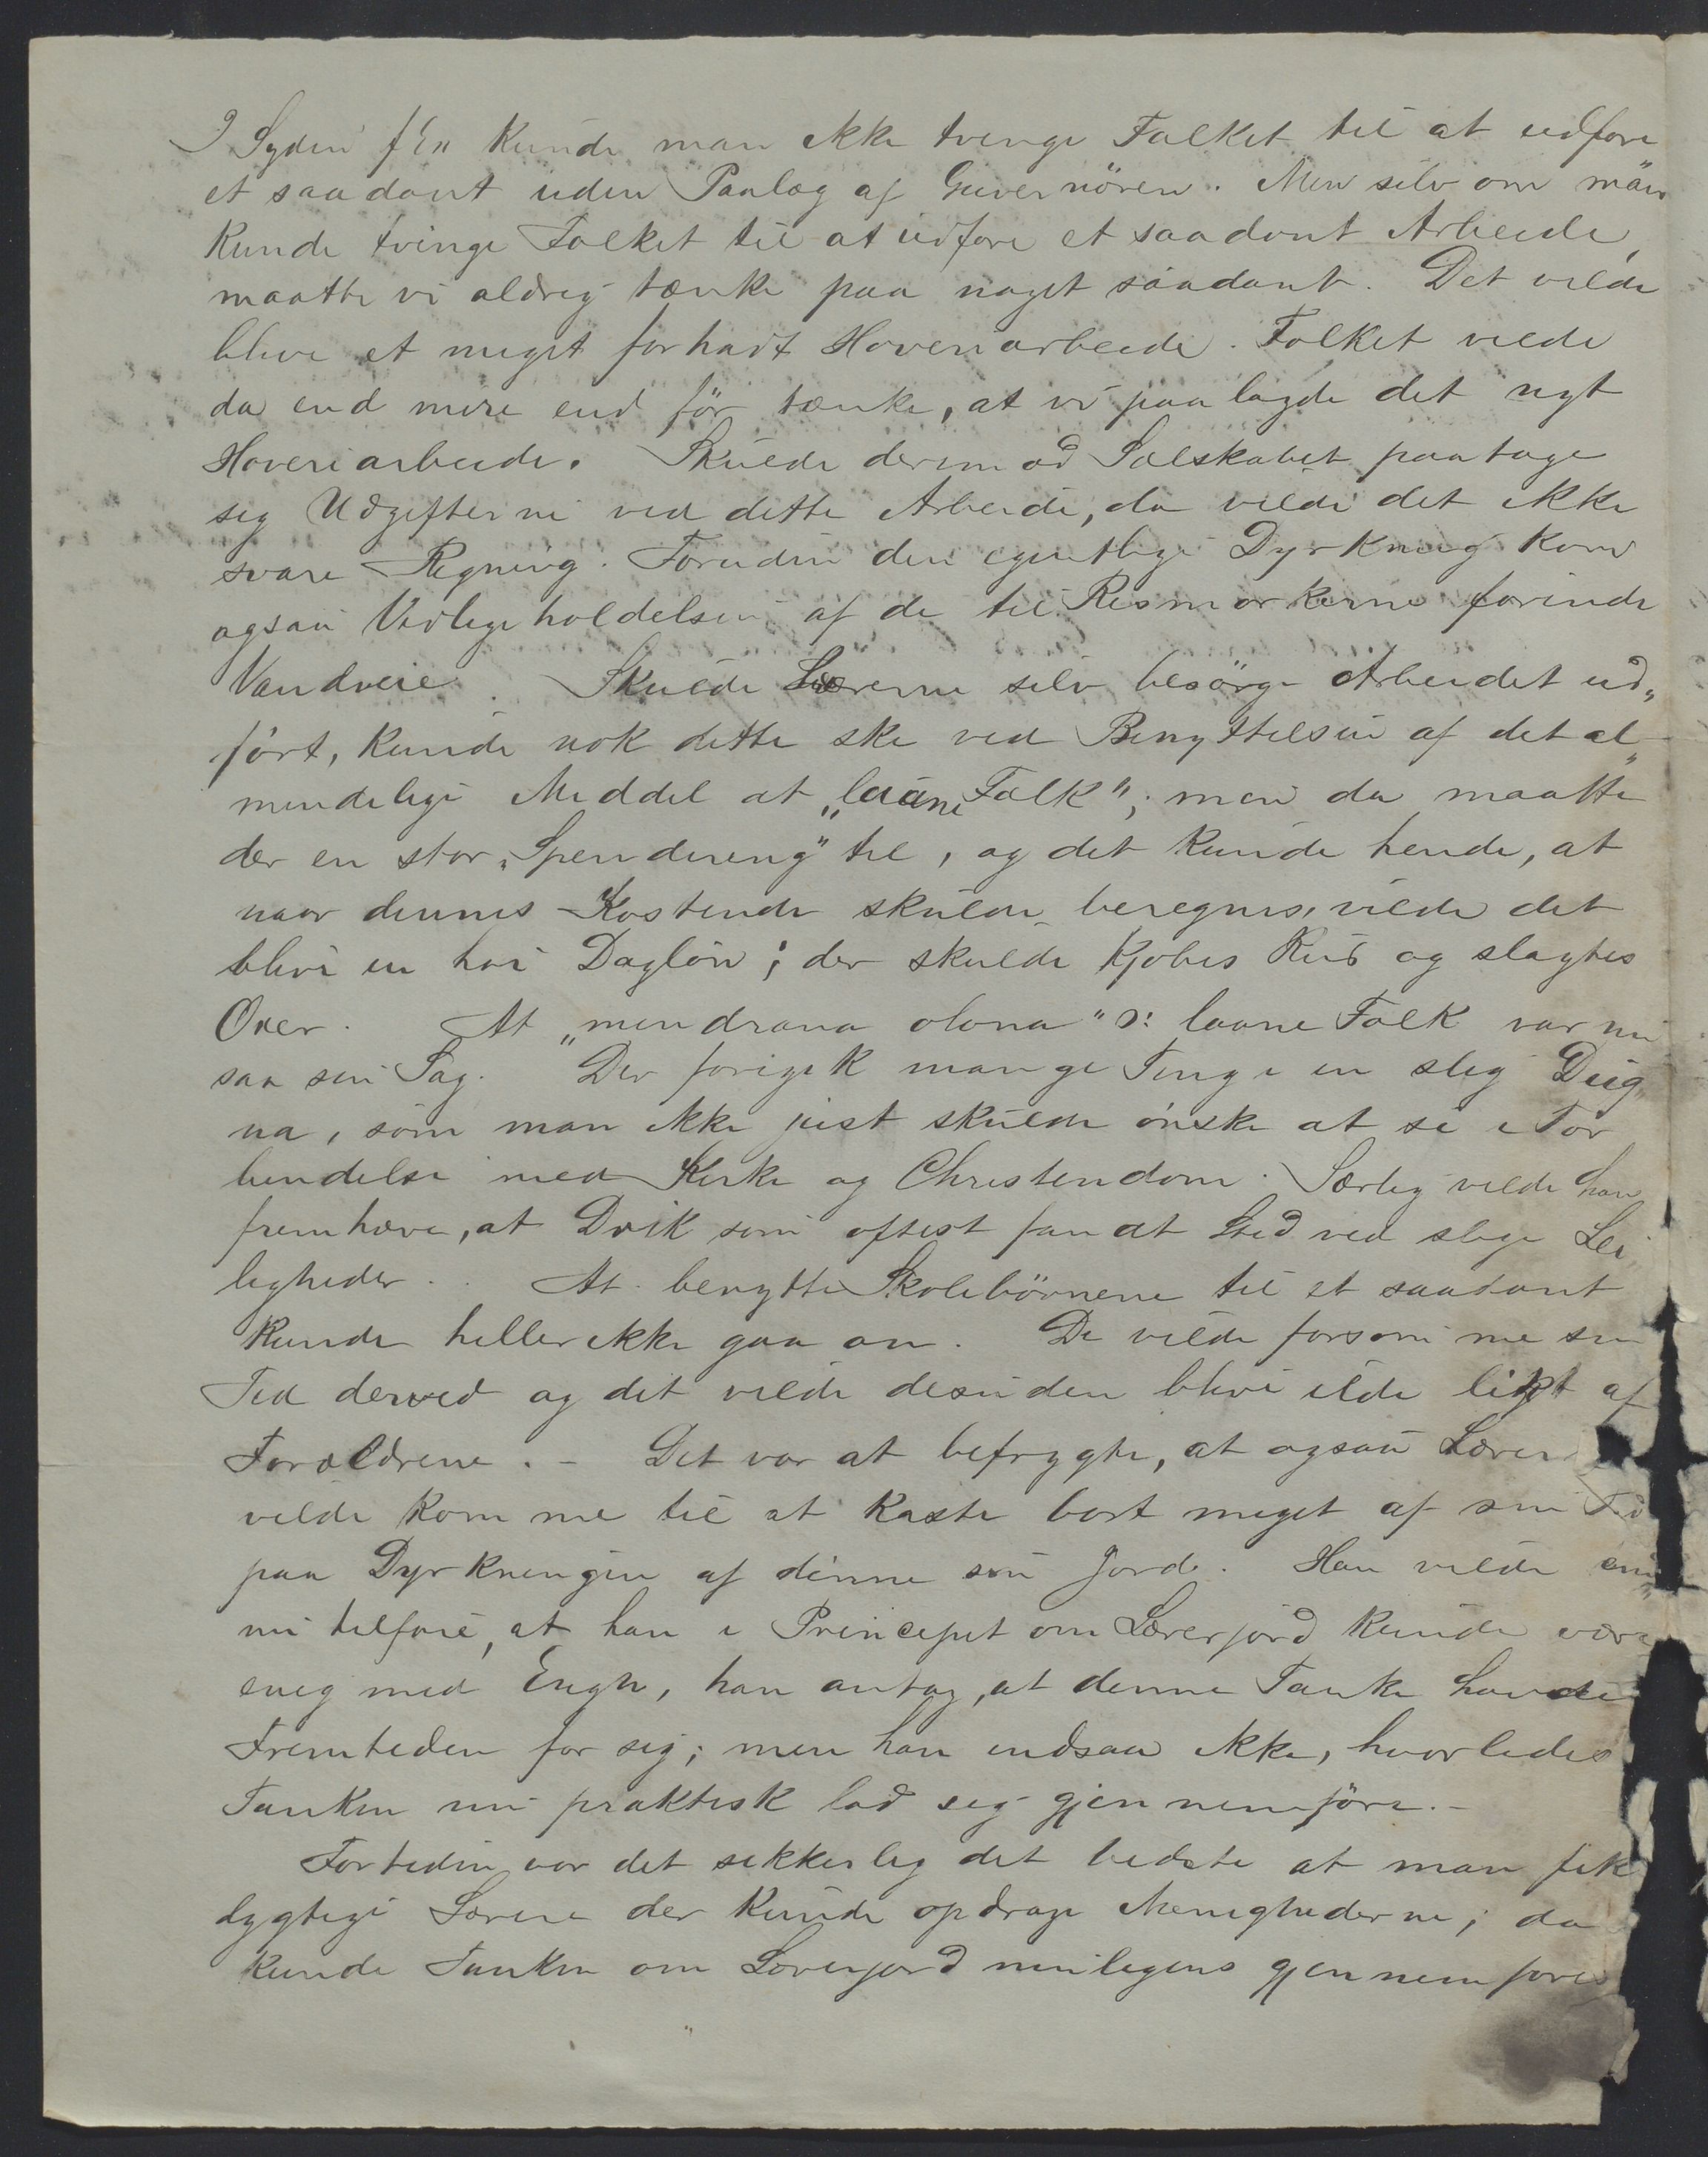 I Syden f Ex kunde man ikke tvinge Folket til at udføre
et saadant uden Paalæg af Guvernören. Men selv om man
kunde tvinge Folket til at udføre et saadant Arbeide,
maatte vi aldrig tænke paa noget saadant. Det vilde
blive et meget forhadt Hoveriarbeide. Folket vilde
da end mere end för tænke, at vi paalagde det nyt
Hoveriarbeide. Skulde derimod Selskabet paatage
sig Udgifterne ved dette Arbeide, da vilde det ikke
svare Regning. Foruden den egentlige Dyrkning kom
ogsaa Vedligeholdelsen af de til Rismarkerne førende
Vandveie. Skulde Lærerne selv besörge Arbeidet ud„
ført, kunde nok dette ske ved Benyttelsen af det al„
mindelige Middel at „laane Folk"; men da maatte
der en stor „Spendering" til, og det kunde hende, at
naar dennes Kostende skulde beregnes, vilde det
blive en høi Dagløn; der skulde kjøbes Ris og slagtes
Oxer. At „mendrana olona" ɔ: laane Folk var nu
saa sin Sag. Der foregik mange Ting i en slig Dug„
na, som man ikke just skulde ønske at se i For
bindelse med Kirke og Christendom. Særlig vilde han
fremhæve, at Drik som oftest fandt Sted ved slige Lei„
ligheder. At benytte Skolebörnene til et saadant
kunde heller ikke gaa an. De vilde forsømme sin
Tid derved og det vilde desuden blive ilde likt af
Forældrene. – Det var at befrygte, at ogsaa Lærer
vilde komme til at kaste bort meget af sin Tid
paa Dyrkningen af denne sin Jord. Han vilde end„
nu tilføie, at han i Princepet om Lærerjord kunde være
enig med Engh, han antog, at denne Tanke havde
Fremtiden for sig; men han indsaa ikke, hvorledes
Tanken nu praktisk lod sig gjennemföre. –
Fortiden var det sikkerlig det bedste at man fik
dygtige Lærere der kunde opdrage Menighederne; da
kunde Tanken om Lærerjord muligens gjennemføres